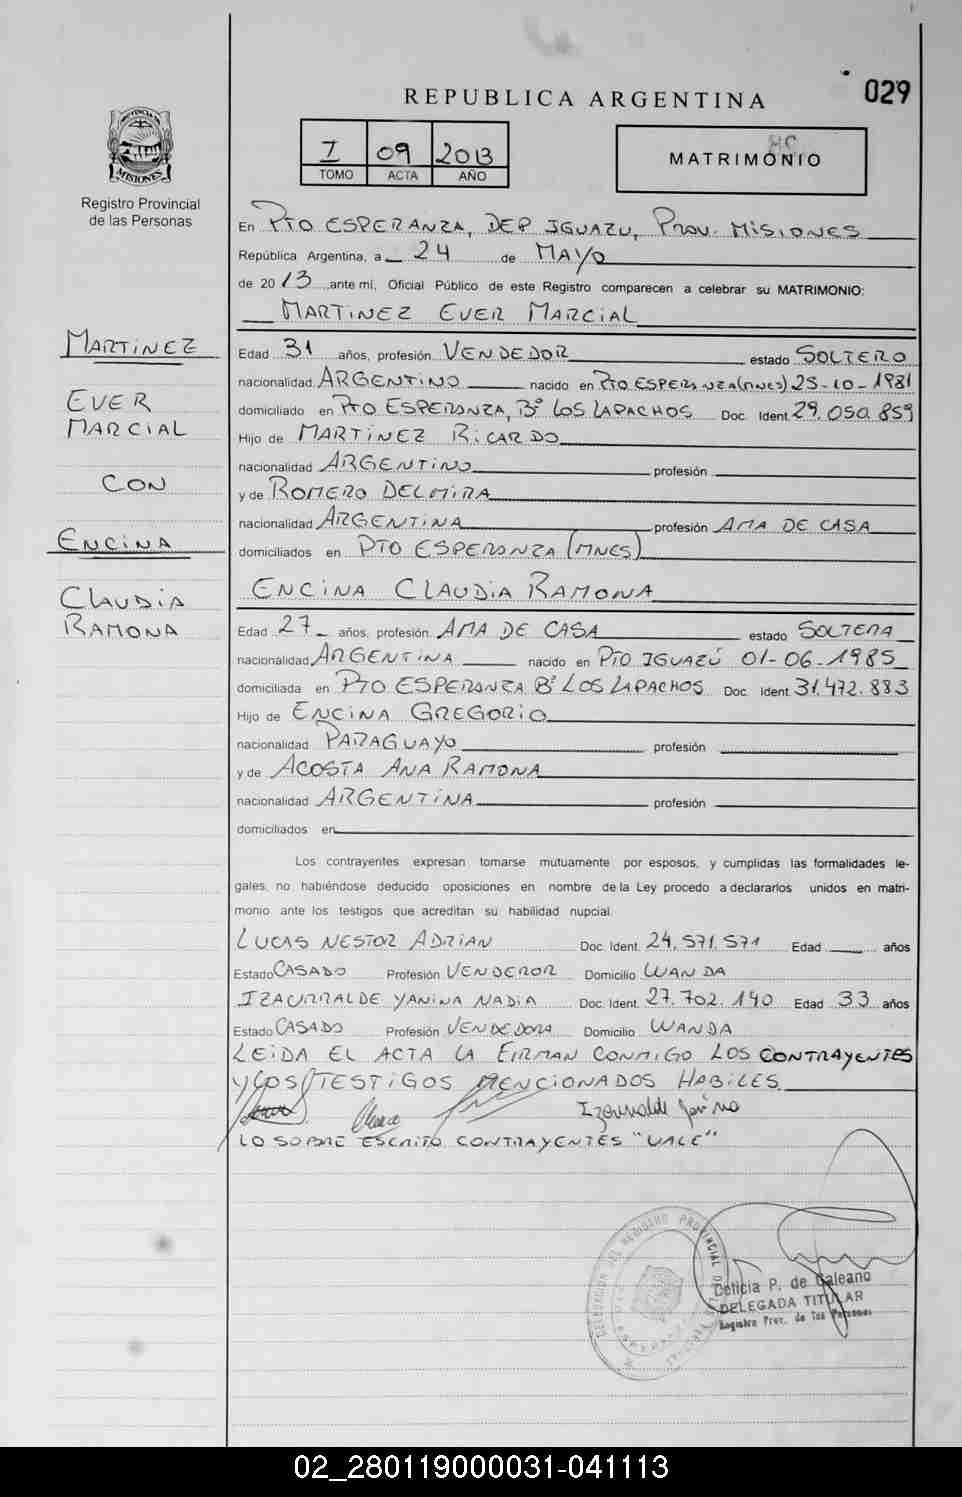 029
REPUBLICA ARGENTINA
I 09 2013
TOMO ACTA AÑO
MATRIMONIO
PROVINCIA DE
MISIONES
Registro Provincial
de las Personas
En PTO ESPERANZA, DEP IGUAZU, PROV. MISIONES
República Argentina, a 24 de MAYO
de 2013 ante mí, Oficial Público de este Registro comparecen a celebrar su MATRIMONIO:
MARTINEZ EVER MARCIAL
MARTINEZ
EVER
MARCIAL
CON
ENCINA
CLAUDIA
RAMONA
Edad 31 años, profesión VENDEDOR estado SOLTERO
nacionalidad ARGENTINO nacido en PTO ESPERANZA (MNES) 25-10-1981
domiciliado en PTO ESPERANZA, Bº LOS LAPACHOS Doc. Ident. 29.050.859
Hijo de MARTINEZ RICARDO
nacionalidad ARGENTINO profesión
y de ROMERO DELMIRA
nacionalidad ARGENTINA profesión AMA DE CASA
domiciliados en PTO ESPERANZA (MNES)
ENCINA CLAUDIA RAMONA
Edad 27 años, profesión AMA DE CASA estado SOLTERA
nacionalidad ARGENTINA nacido en PTO IGUAZÚ 01-06-1985
domiciliada en PTO ESPERANZA Bº LOS LAPACHOS Doc. Ident. 31.472.883
Hijo de ENCINA GREGORIO
nacionalidad PARAGUAYO profesión
y de ACOSTA ANA RAMONA
nacionalidad ARGENTINA profesión
domiciliados en
Los contrayentes expresan tomarse mutuamente por esposos, y cumplidas las formalidades le-
gales, no habiéndose deducido oposiciones en nombre de la Ley procedo a declararlos unidos en matri-
monio ante los testigos que acreditan su habilidad nupcial.
LUCAS NESTOR ADRIAN Doc. Ident. 24.571.571 Edad años
Estado CASADO Profesión VENDEROR Domicilio WANDA
IZAURRALDE YANINA NADIA Doc. Ident. 27.702.140 Edad 33 años
Estado CASADO Profesión VENDEDORA Domicilio WANDA
LEIDA EL ACTA LA FIRMAN CONMIGO LOS CONTRAYENTES
Y LOS TESTIGOS MENCIONADOS HABILES
Izaurralde Yanina
LO SOBRE ESCRITO CONTRAYENTES "VALE"
DELEGACION DEL REGISTRO PROVINCIAL DE LAS
P. de Galeano
DELEGADA TITULAR
Registro Prov. de las Personas
02_280119000031-041113